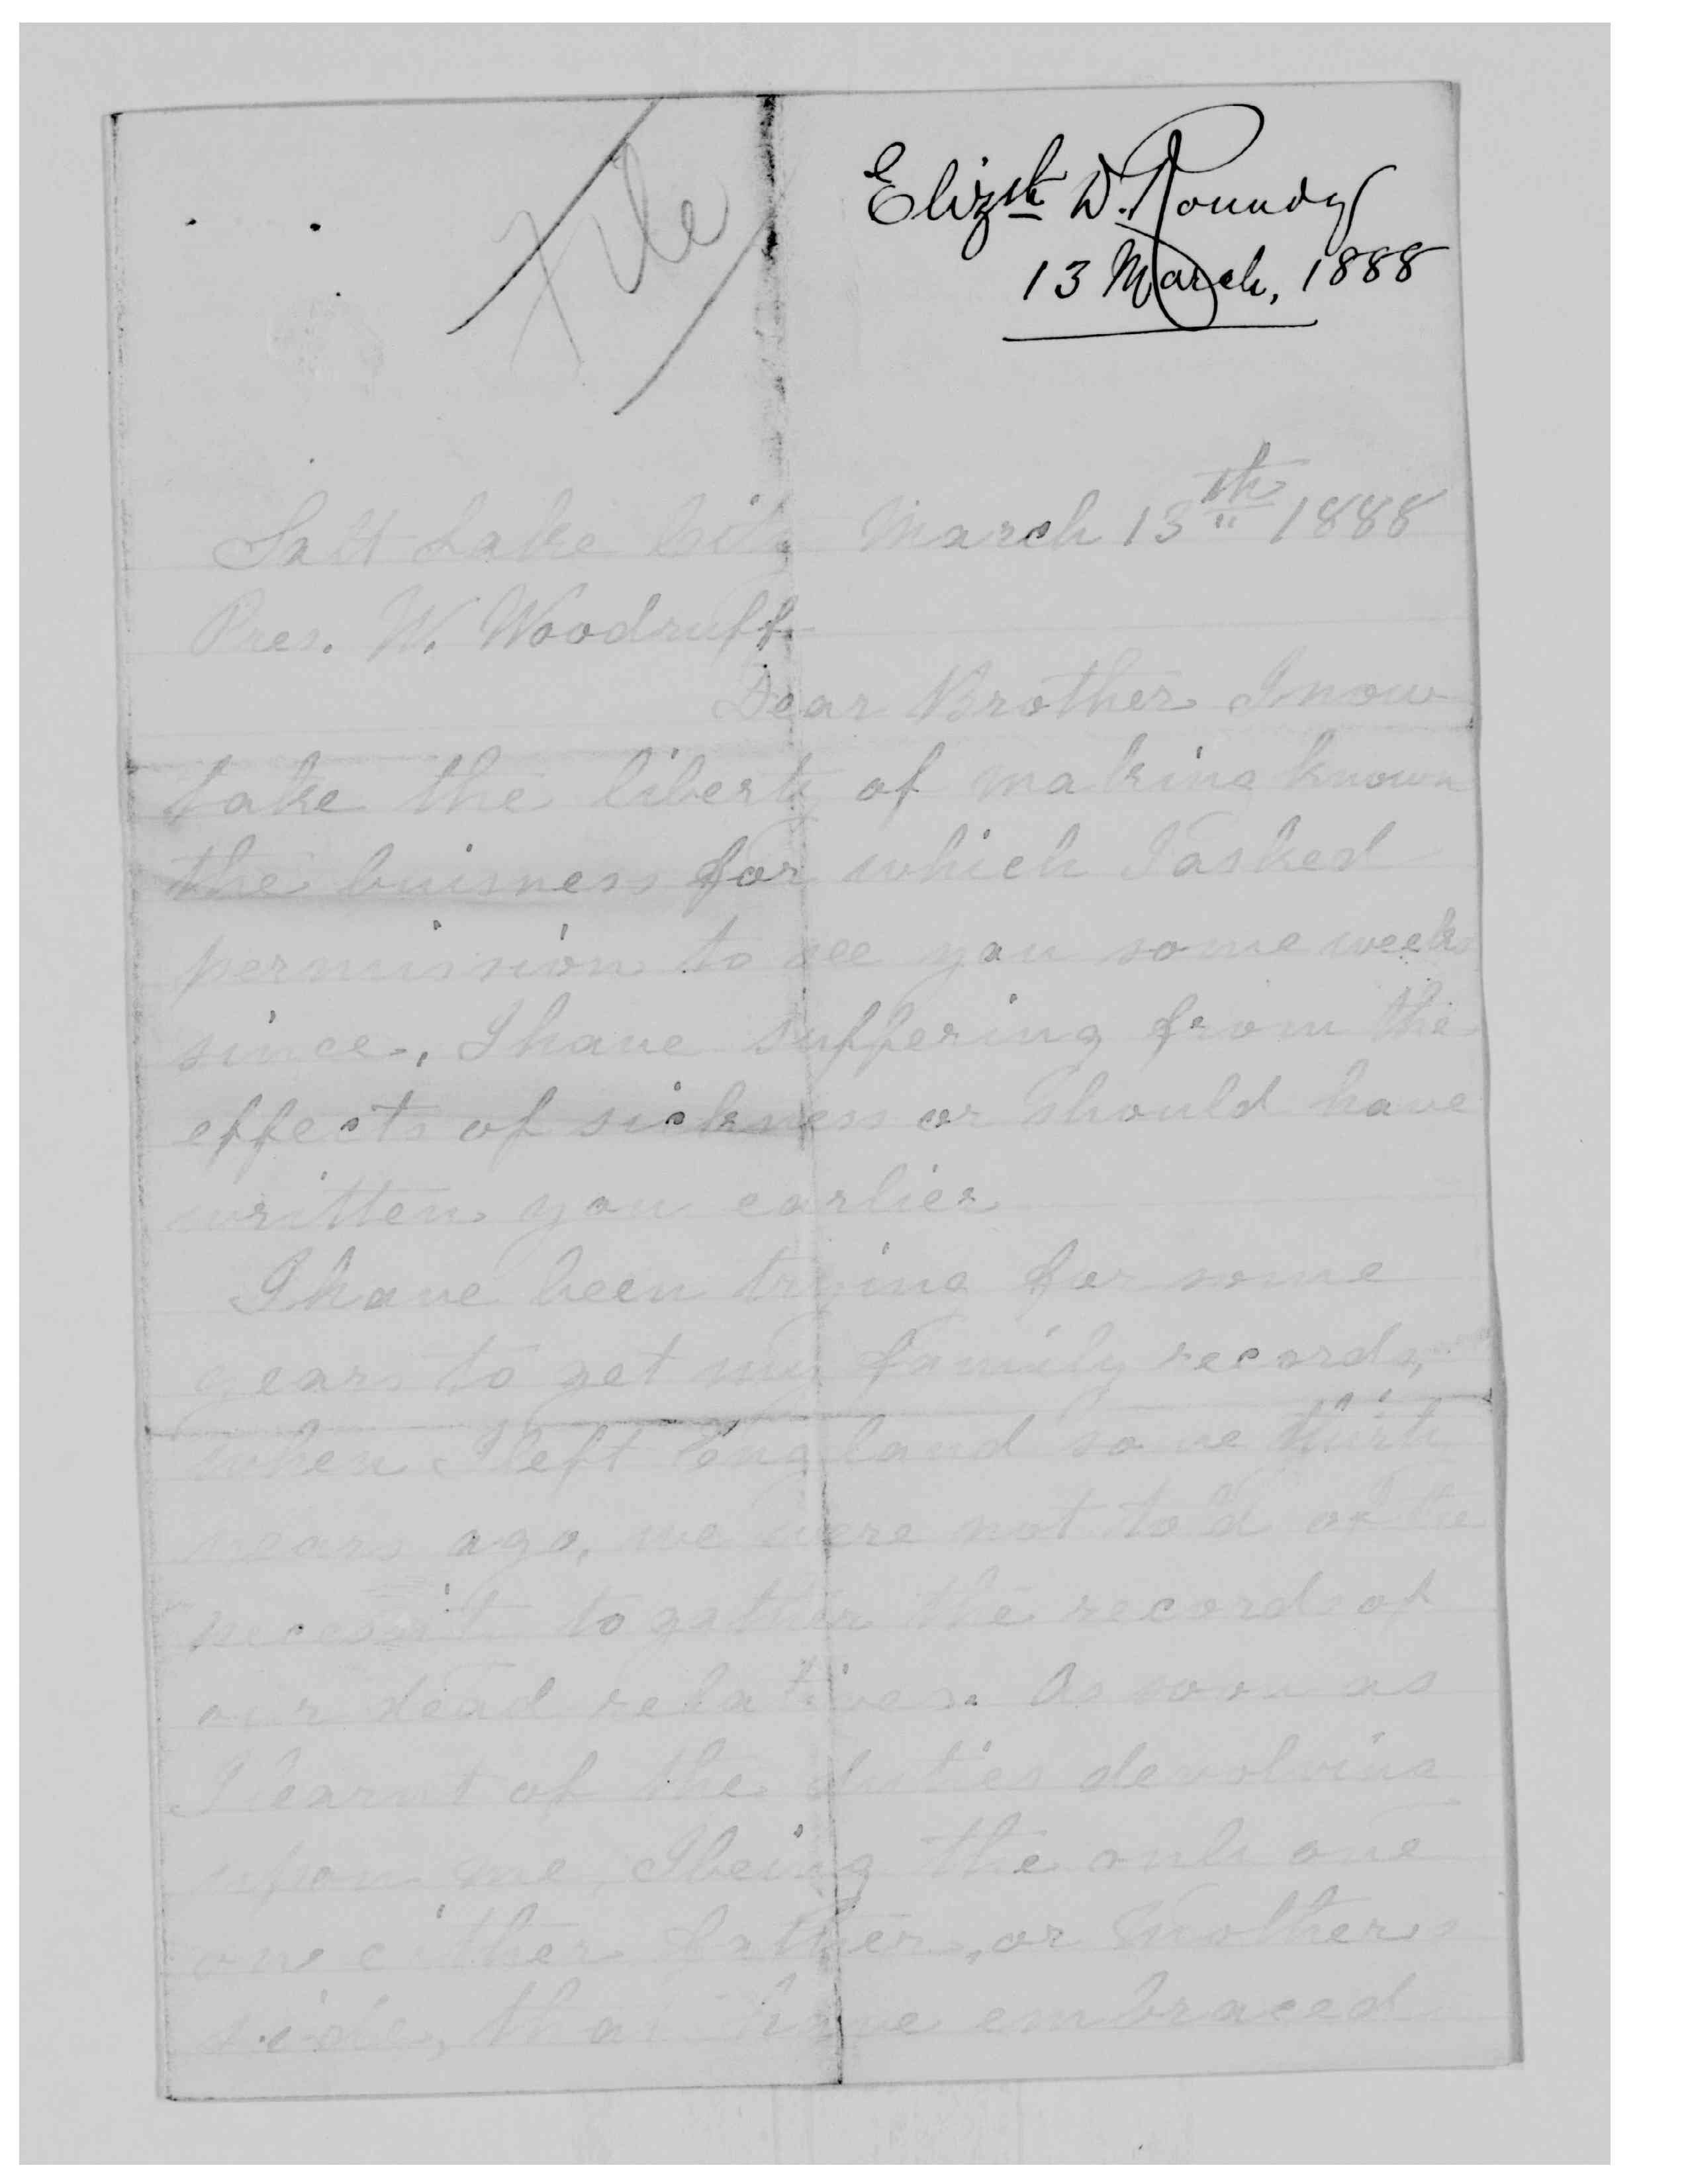 File
Elizth D. Roundy
13 March, 1888
Salt Lake City March 13th 1888
Pres. W. Woodruff
Dear Brother I now
take the liberty of making known
the buisness for which I asked
permission to see you some weeks
since, I have suffering from the
effects of sickness or should have
written you earlier
I have been trying for some
years to get my family records,
when I left England some thirty
years ago, we were not told of the
necessity to gather the records of
our dead relatives. As soon as
I learnt of the duties devolving
upon me, I being the only one
on either father, or mothers
side, that have embraced